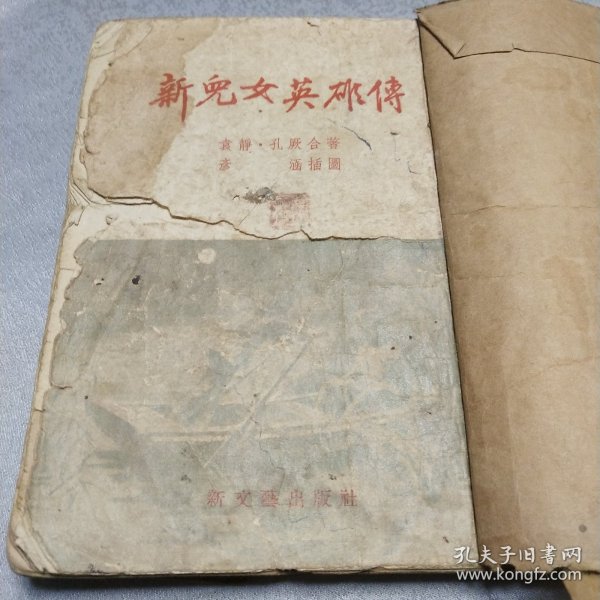 新兒女英雄傳
袁靜·孔厥合著
彥 涵插圖
新文藝出版社
孔夫子旧书网
www.kongfz.com